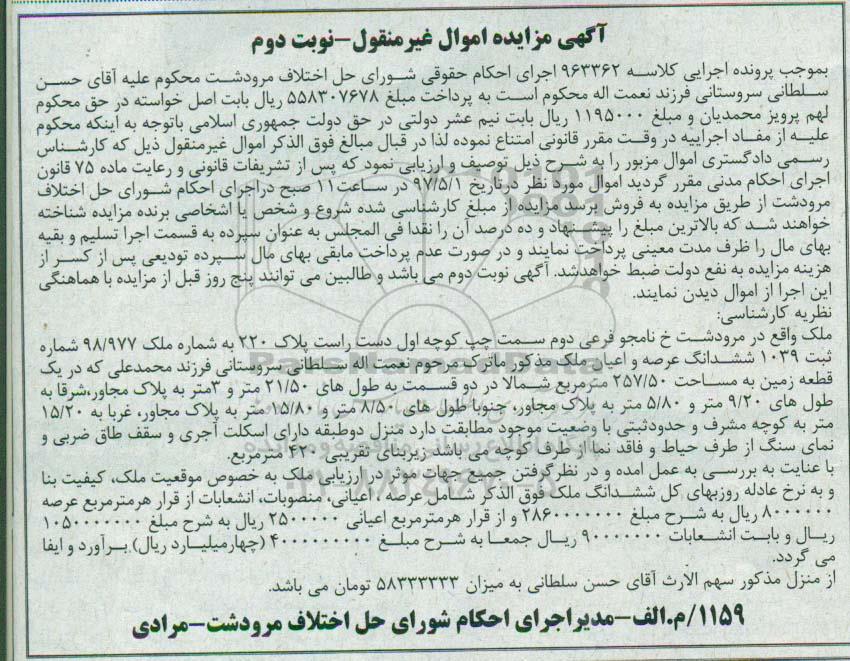 آگهی مزایده اموال غیرمنقول-نوبت دوم
بموجب پرونده اجرایی کلاسه ۹۶۳۳۶۲ اجرای احکام حقوقی شورای حل اختلاف مرودشت محکوم علیه آقای حسن
سلطانی سروستانی فرزند نعمت اله محکوم است به پرداخت مبلغ ۵۵۸۳۰۷۶۷۸ ریال بابت اصل خواسته در حق محکوم
لهم پرویز محمدیان و مبلغ ۱۱۹۵۰۰۰ ریال بابت نیم عشر دولتی در حق دولت جمهوری اسلامی باتوجه به اینکه محکوم
علیه از مفاد اجراییه در وقت مقرر قانونی امتناع نموده لذا در قبال مبالغ فوق الذکر اموال غیرمنقول ذیل که کارشناس
رسمی دادگستری اموال مزبور را به شرح ذیل توصیف و ارزیابی نمود که پس از تشریفات قانونی و رعایت ماده ۷۵ قانون
اجرای احکام مدنی مقرر گردید اموال مورد نظر درتاریخ ۹۷/۵/۱ در ساعت۱۱ صبح دراجرای احکام شورای حل اختلاف
مرودشت از طریق مزایده به فروش برسد مزایده از مبلغ کارشناسی شده شروع و شخص یا اشخاصی برنده مزایده شناخته
خواهند شد که بالاترین مبلغ را پیشنهاد و ده درصد آن را نقدا فی المجلس به عنوان سپرده به قسمت اجرا تسلیم و بقیه
بهای مال را ظرف مدت معینی پرداخت نمایند و در صورت عدم پرداخت مابقی بهای مال سپرده تودیعی پس از کسر از
هزینه مزایده به نفع دولت ضبط خواهدشد. آگهی نوبت دوم می باشد و طالبین می توانند پنج روز قبل از مزایده با هماهنگی
این اجرا از اموال دیدن نمایند.
نظریه کارشناسی:
ملک واقع در مرودشت خ نامجو فرعی دوم سمت چپ کوچه اول دست راست پلاک ۲۲۰ به شماره ملک ۹۸/۹۷۷ شماره
ثبت ۱۰۳۹ ششدانگ عرصه و اعیان ملک مذکور ماترک مرحوم نعمت اله سلطانی سروستانی فرزند محمدعلی که در یک
قطعه زمین به مساحت ۲۵۷/۵۰ مترمربع شمالا در دو قسمت به طول های ۲۱/۵۰ متر و ۳متر به پلاک مجاور،شرقا به
طول های ۹/۲۰ متر و ۵/۸۰ متر به پلاک مجاور، جنوبا طول های ۸/۵۰ متر و ۱۵/۸۰ متر به پلاک مجاور، غربا به ۱۵/۲۰
متر به کوچه مشرف و حدودثبتی با وضعیت موجود مطابقت دارد منزل دوطبقه دارای اسکلت آجری و سقف طاق ضربی و
نمای سنگ از طرف حیاط و فاقد نما از طرف کوچه می باشد زیربنای تقریبی ۴۲۰ مترمربع.
با عنایت به بررسی به عمل امده و در نظرگرفتن جمیع جهات موثر در ارزیابی ملک به خصوص موقعیت ملک، کیفیت بنا
و به نرخ عادله روزبهای کل ششدانگ ملک فوق الذکر شامل عرصه ، اعیانی، منصوبات، انشعابات از قرار هرمترمربع عرصه
۸۰۰۰۰۰۰ ریال به شرح مبلغ ۲۸۶۰۰۰۰۰۰۰ و از قرار هرمترمربع اعیانی ۲۵۰۰۰۰۰ ریال به شرح مبلغ ۱۰۵۰۰۰۰۰۰۰
ریال و بابت انشعابات ۹۰۰۰۰۰۰۰ ریال جمعا به شرح مبلغ ۴۰۰۰۰۰۰۰۰۰ (چهارمیلیارد ریال) برآورد و ایفا
می گردد.
از منزل مذکور سهم الارث آقای حسن سلطانی به میزان ۵۸۳۳۳۳۳۳ تومان می باشد.
۱۱۵۹/م.الف-مدیراجرای احکام شورای حل اختلاف مرودشت-مرادی
ParsNamadData